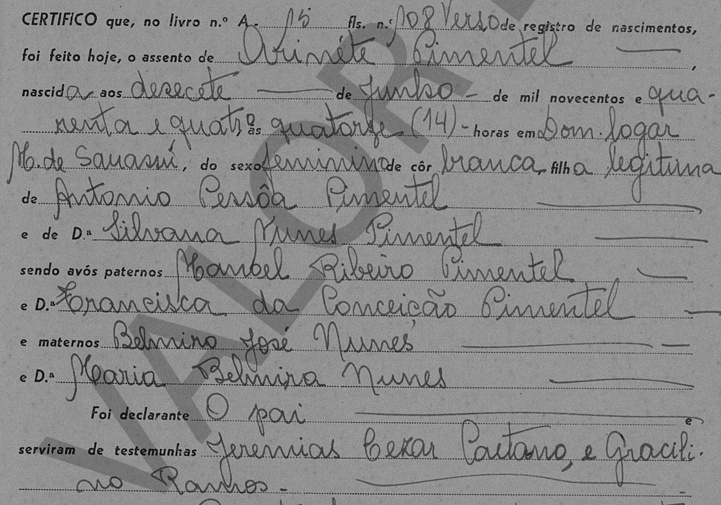 CERTIFICO que, no livro n.º A - 15 fls. n.º 108 Verso de registro de nascimentos,
foi feito hoje, o assento de Arinéte Pimentel
nascida aos desecete de Junho - de mil novecentos e qua-
renta e quatro às quatorze (14) - horas em Dom. logar
M. de Sauassuí, do sexo feminino de côr branca, filha legitima
de Antonio Pessôa Pimentel
e de D.ª Silvana Nunes Pimentel
sendo avós paternos Manoel Ribeiro Pimentel
e D.ª Francisca da Conceição Pimentel
e maternos Belmiro José Nunes
e D.ª Maria Belmira Nunes
Foi declarante O pai e
serviram de testemunhas Jeremias Cezar Caetano, e Gracili-
no Ramos -
VALOR